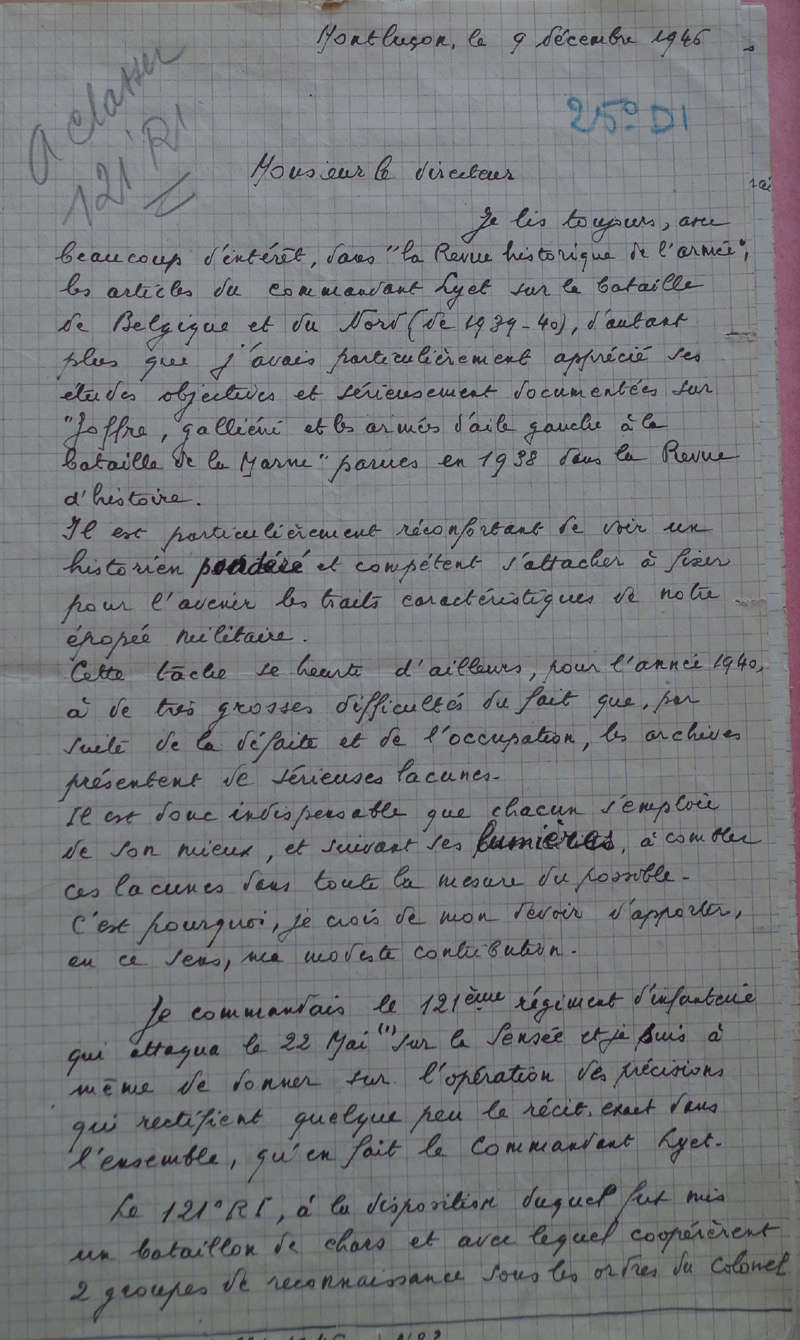 Montluçon, le 9 décembre 1946
A classer
121 RI
25° DI
Monsieur le Directeur
Je lis toujours, avec
beaucoup d'intérêt, dans "la Revue historique de l'armée",
les articles du commandant Lyet sur la bataille
de Belgique et du Nord (de 1939-40), d'autant
plus que j'avais particulièrement apprécié ses
études objectives et sérieusement documentées sur
"Joffre, galliéni et les armées d'aile gauche à la
bataille de la Marne" parues en 1938 dans la Revue
d'histoire.
Il est particulièrement réconfortant de voir un
historien pondéré et compétent s'attacher à fixer
pour l'avenir les traits caractéristiques de notre
épopée militaire.
Cette tâche se heurte d'ailleurs, pour l'année 1940,
à de très grosses difficultés du fait que, par
suite de la défaite et de l'occupation, les archives
présentent de sérieuses lacunes.
Il est donc indispensable que chacun s'emploie
de son mieux, et suivant ses lumières, à combler
ces lacunes dans toute la mesure du possible.
C'est pourquoi, je crois de mon devoir d'apporter,
en ce sens, ma modeste contribution.
Je commandais le 121ème régiment d'infanterie
qui attaqua le 22 Mai (1) sur la Sensée et je suis à
même de donner sur l'opération des précisions
qui rectifient quelque peu le récit, exact dans
l'ensemble, qu'en fait le Commandant Lyet.
Le 121° RI, à la disposition duquel fut mis
un bataillon de chars et avec lequel coopérèrent
2 groupes de reconnaissance sous les ordres du Colonel